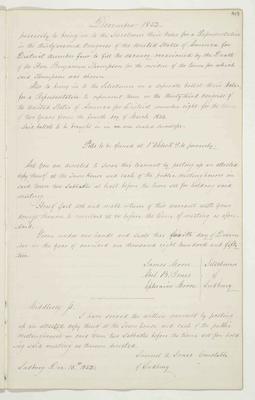 December 1852.
presently to bring in to the Selectmen their votes for a Representative
in the thirty second Congress of the United States of America for
District number four to fill the vacancy occasioned by the Death
of the Hon. Benjamin Thompson for the residue of the term for which
said Thompson was chosen
Also to bring in to the Selectmen on a separate ballot their votes
for a Representative to represent them in the thirty third Congress of
the United States of America for District number eight for the term
of two years from the fourth day of March 1853.
Said ballots to be brought in on one sealed envelope.
Polls to be closed at O'Clock P.M. precisely.
And you are directed to serve this warrant by posting up an attested
copy thereof at the Town House and each of the public meetinghouses in
said town two Sabbaths at least before the time set for holding said
meeting.
Hereof fail not and make return of this warrant with your
doings thereon to ourselves at or before the time of meeting as afore-
said.
Given under our hands and seals this fourth day of Decem
ber in the year of our Lord one thousand eight hundred and fifty
two.
James Moore
Abel B. Jones
Ephraim Moore
Selectmen
of
Sudbury
Middlesex ss.
I have served the within warrant by posting
up an attested copy thereof at the Town house and each of the public
meetinghouses in said town two Sabbaths before the time set for hold
ing said meeting as therein directed.
Samuel A. Jones Constable
of Sudbury
Sudbury Dec. 13th 1852.